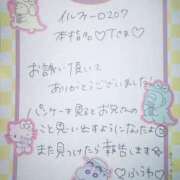 イルフォーロ207
本指名♡Tさま♡
お誘い頂いて
ありがとうございました!
パンケーキ見るとお兄さんの
こと思い出すようになったよ
また見つけたら報告します
♡ふうわ♡